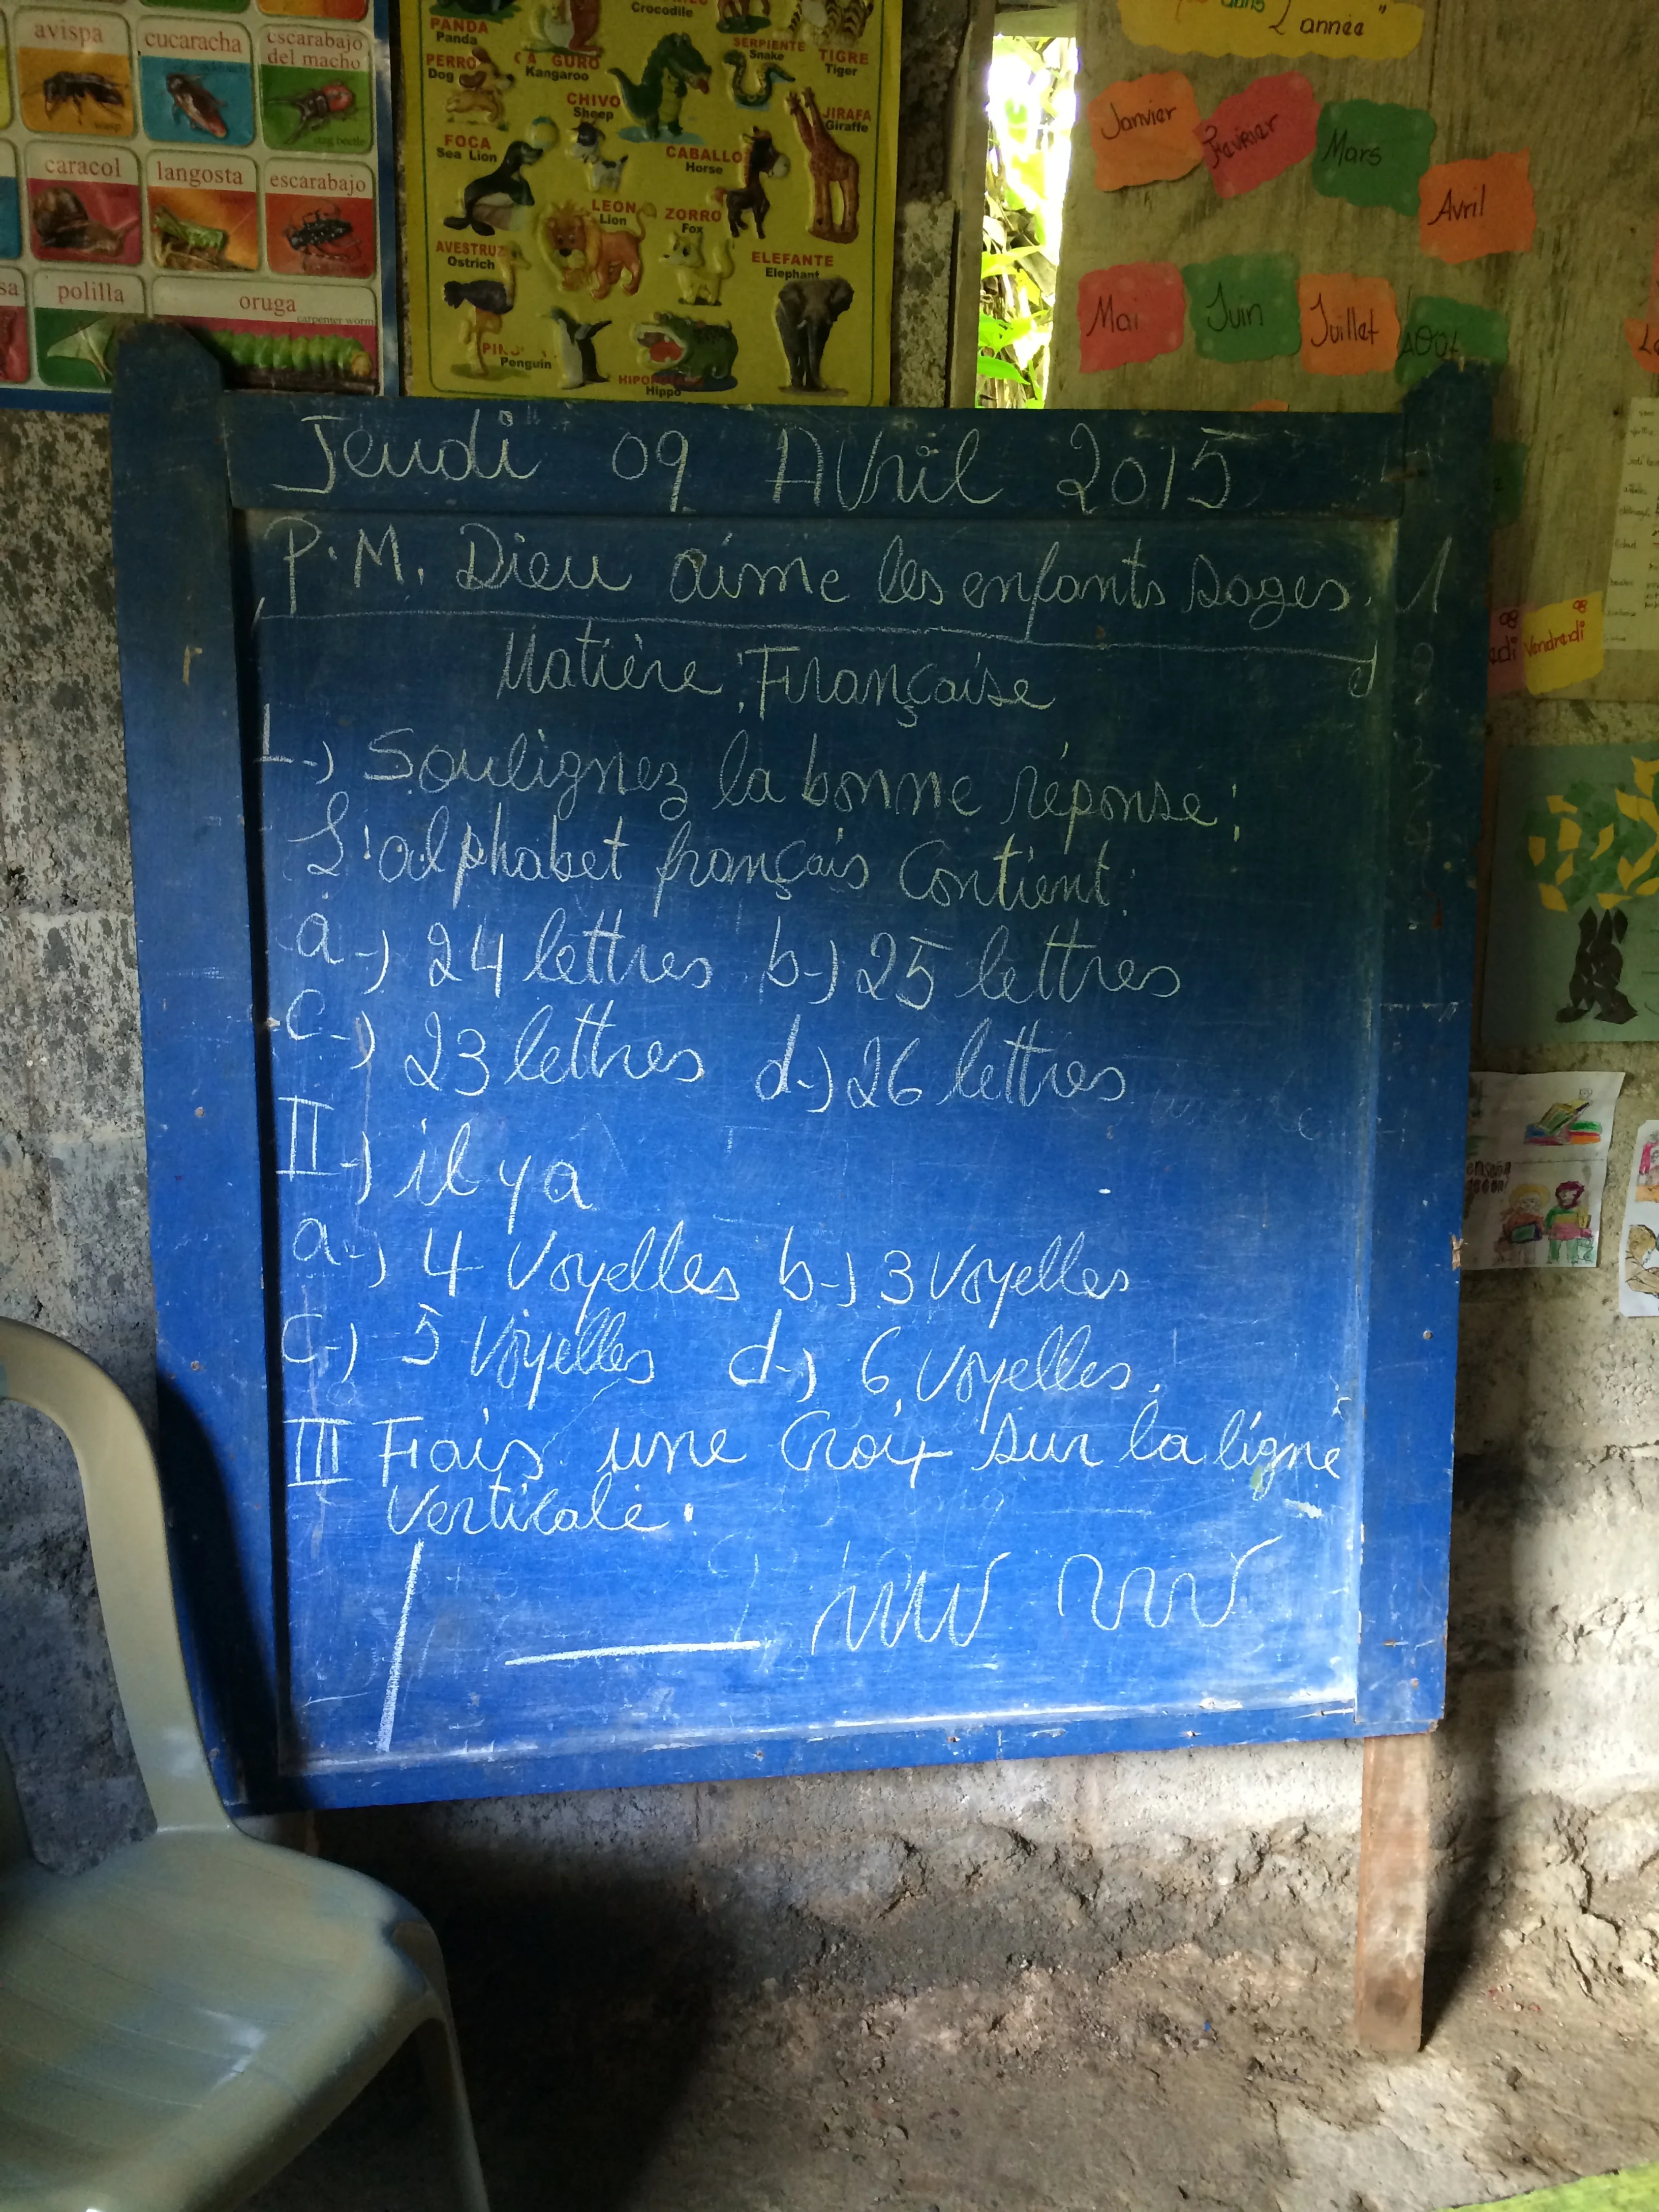 avispa
cucaracha
escarabajo
del macho
wasp
stag beetle
caracol
langosta
escarabajo
polilla
oruga
carpenter worm
PANDA
Panda
Crocodile
PERRO
Dog
Kangaroo
SERPIENTE
Snake
TIGRE
Tiger
CHIVO
Sheep
JIRAFA
Giraffe
FOCA
Sea Lion
CABALLO
Horse
LEON
Lion
ZORRO
Fox
AVESTRUZ
Ostrich
ELEFANTE
Elephant
Penguin
Hippo
dans
L'année"
Janvier
Février
Mars
Avril
Mai
Juin
Juillet
AOUt
Vendredi
Jeudi 09 AVril 2015
P.M. Dieu aime les enfants sages.
Matière : Française
I-) Soulignez la bonne réponse:
L'alphabet français Contient:
a-) 24 lettres b-) 25 lettres
C-) 23 lettres d-) 26 lettres
II-) il y a
a-) 4 Voyelles b-) 3 Voyelles
C-) 5 Voyelles d-) 6 Voyelles.
III Fais une Croix sur la ligne
Verticale.